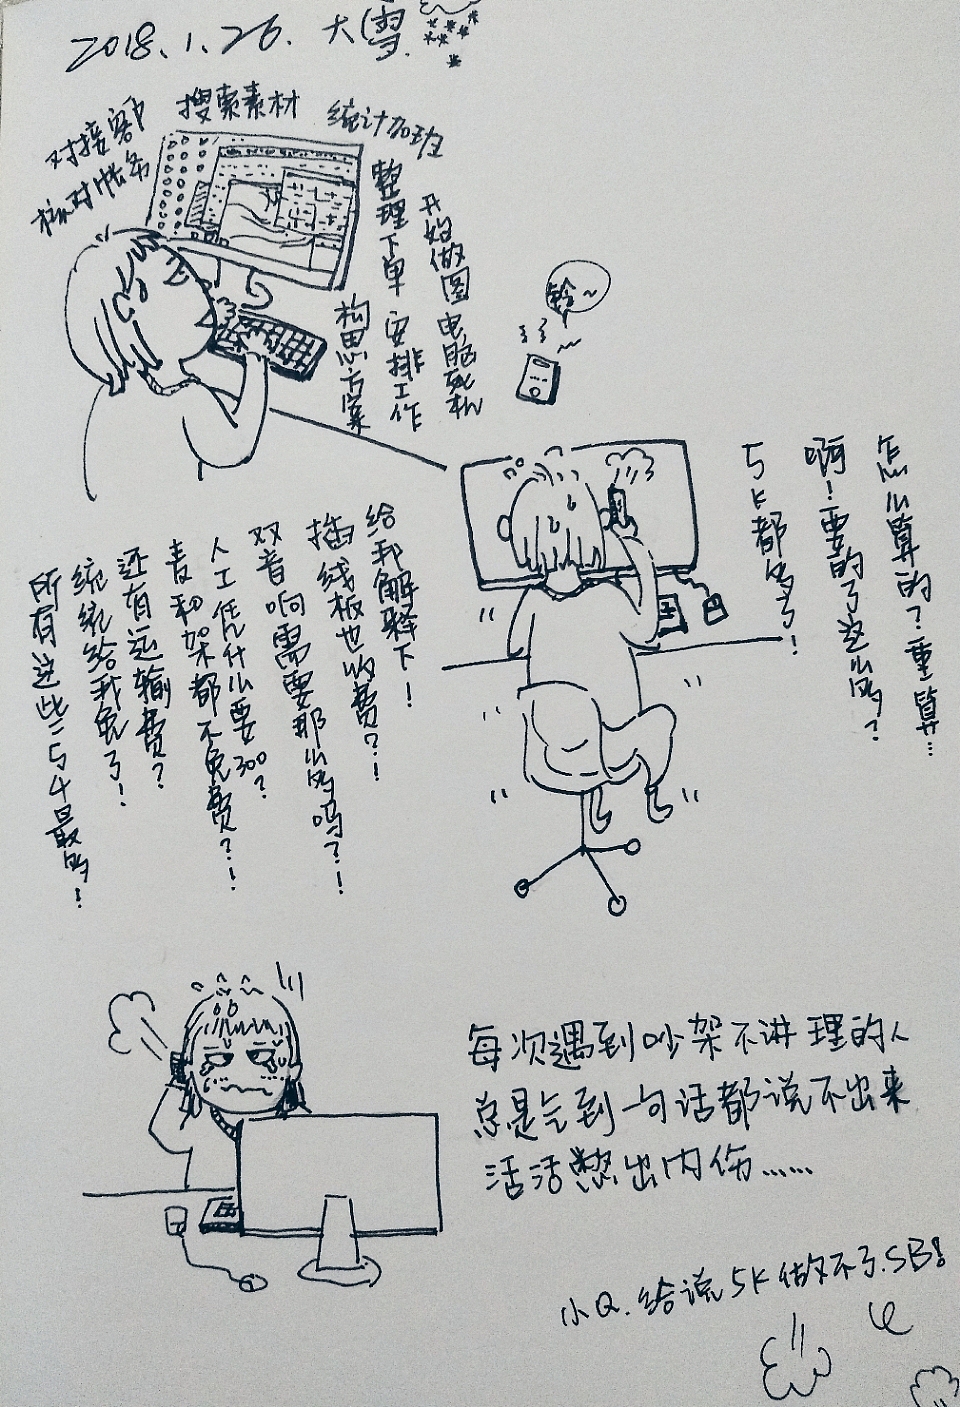 2018.1.26. 大雪.
对接客户
核对帐务
搜索素材
统计加班
整理下单
开始做图
电脑死机
构思方案
安排工作
铃~
怎么算的？重算…
啊！要的了这么多？
5K都多了！
给我解释下！
插线板也收费？！
双音响需要那么多吗？！
人工凭什么要300？
麦和架都不免费？！
还有运输费？
统统给我免了！
所有这些三5千最多！
每次遇到吵架不讲理的人
总是气到一句话都说不出来
活活憋出内伤……
小Q.给说5K做不了.SB!